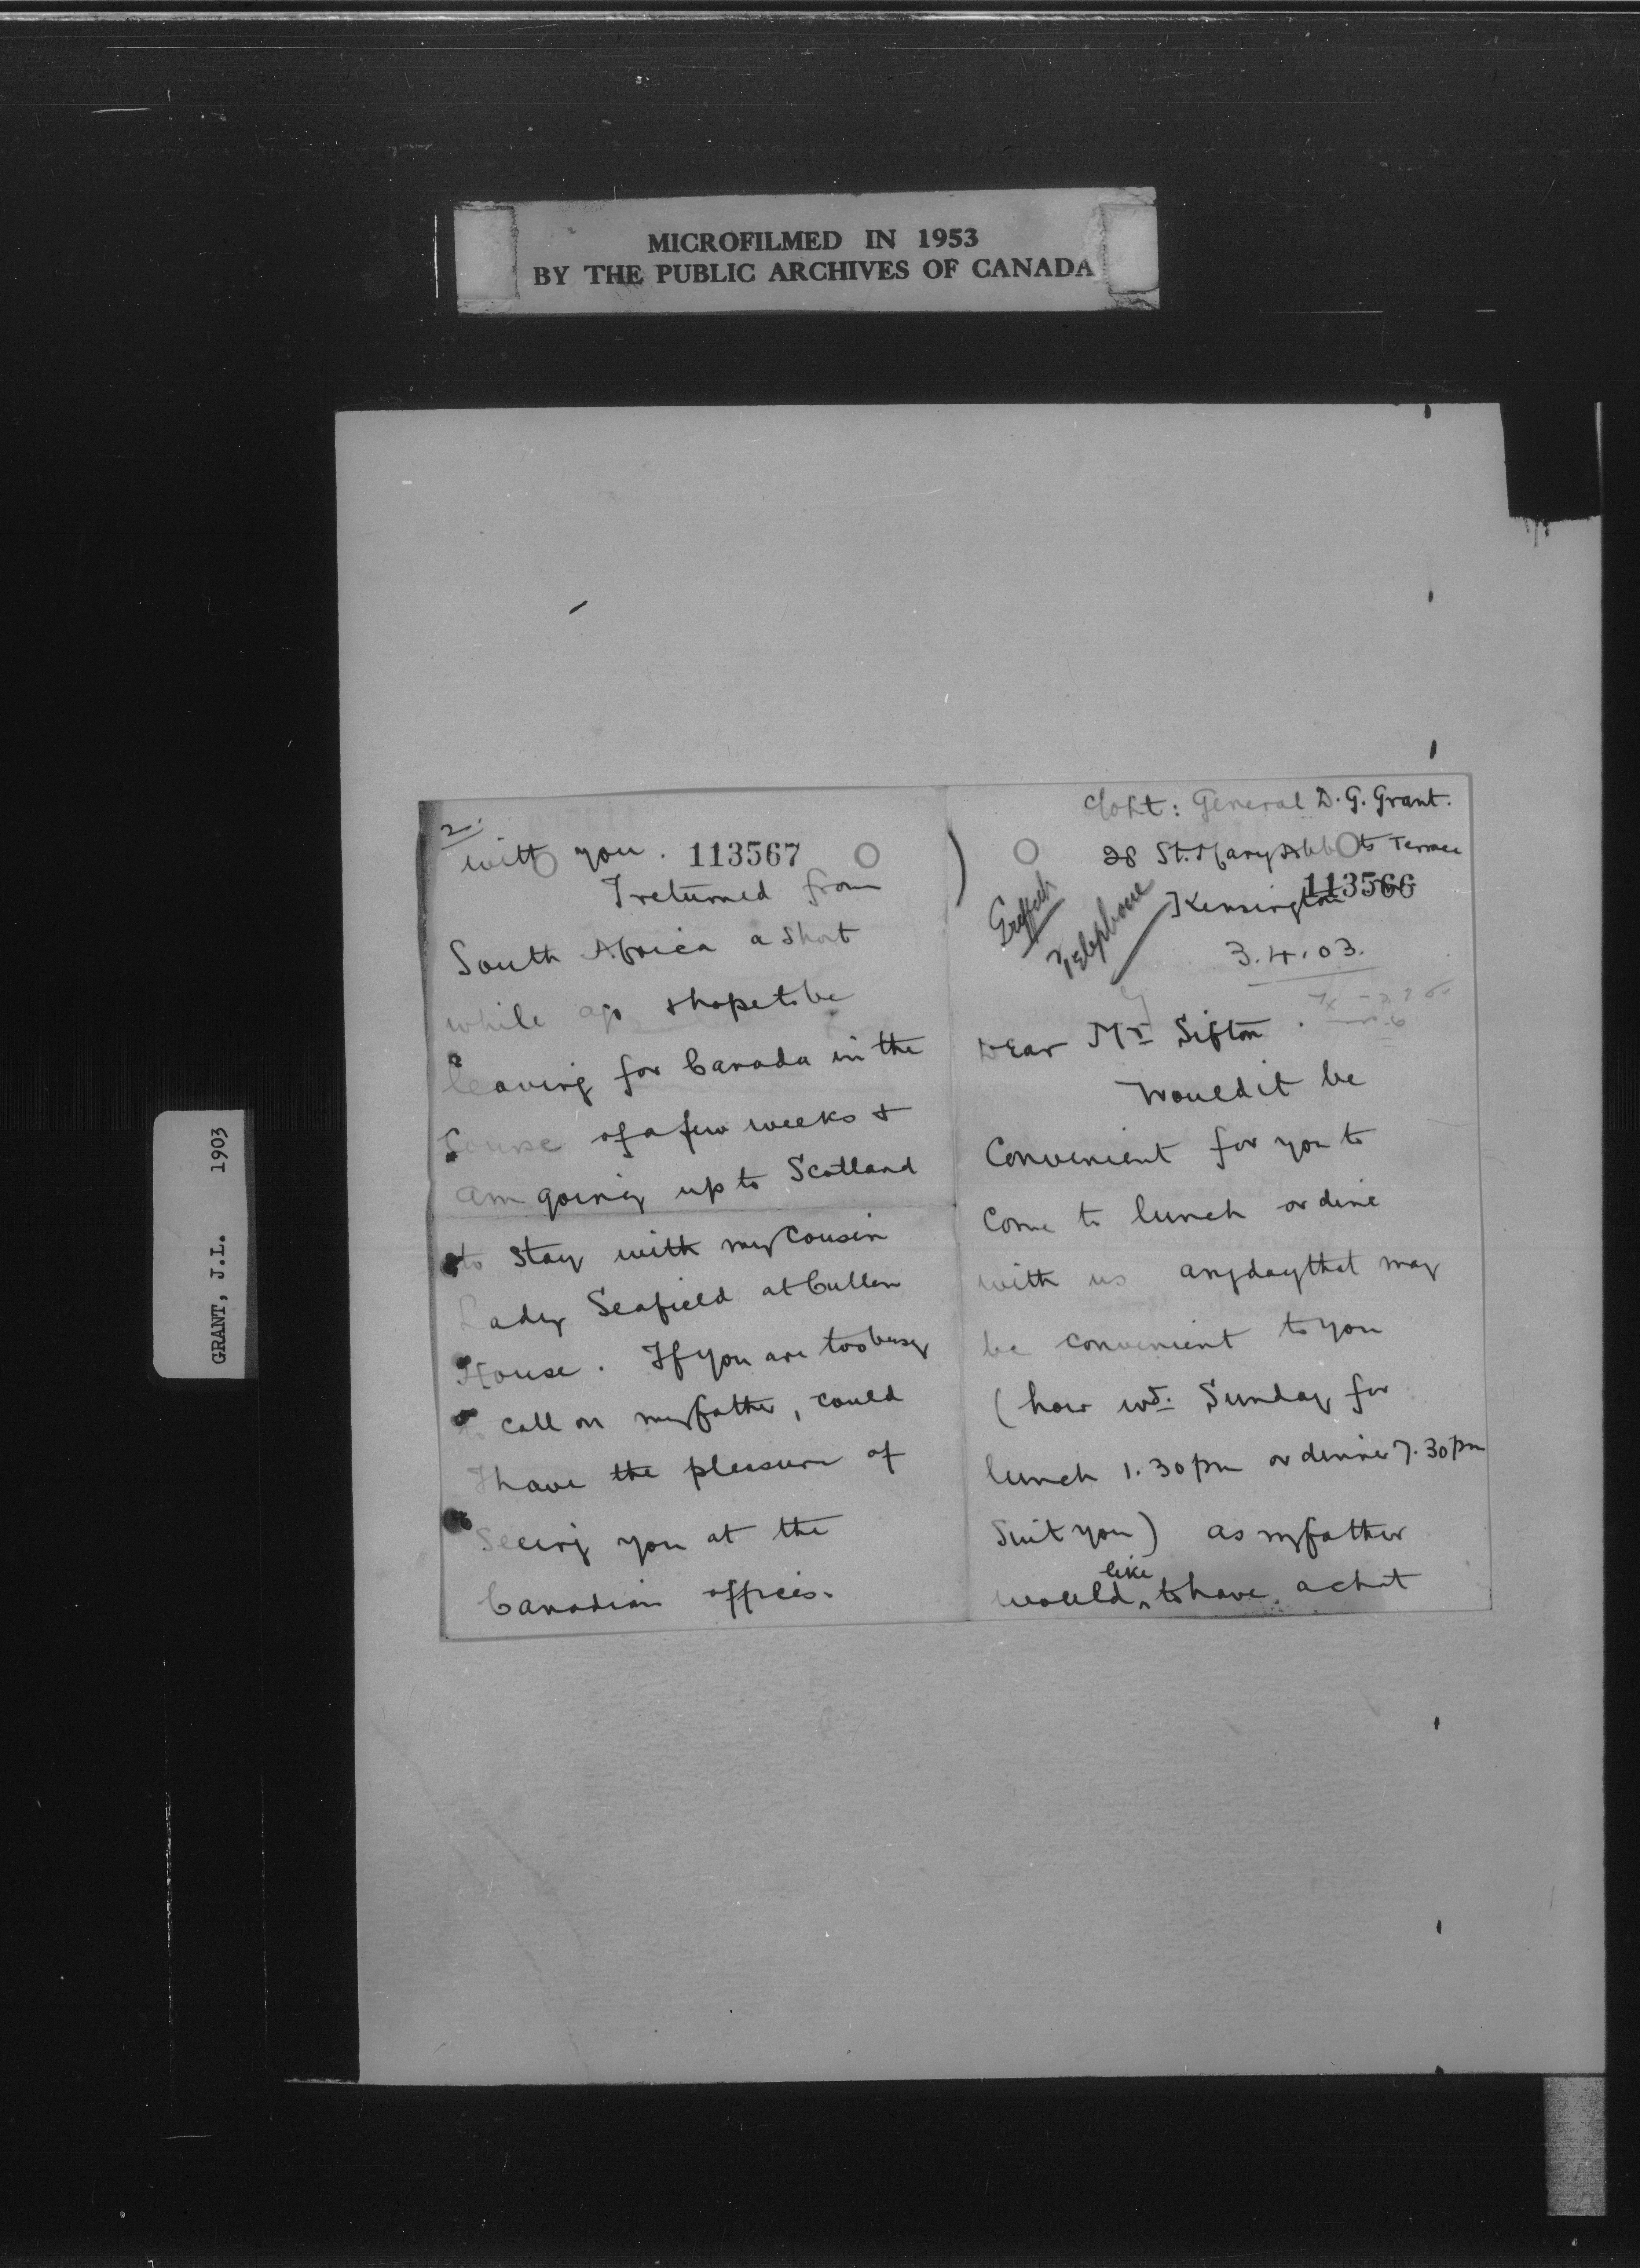 MICROFILMED IN 1953
BY THE PUBLIC ARCHIVES OF CANADA
GRANT, J.L. 1903
c/o Lt: General D. G. Grant.
28 St. Mary Abbots Terrace
Kensington
113566
Telephone
3.4.03.
Dear Mr Sifton
Would it be
Convenient for you to
Come to lunch or dine
with us any day that may
be convenient to you
(how wd. Sunday for
lunch 1.30 pm or dinner 7.30 pm
Suit you) as my father
would like to have a chat
2.
with you. 113567
I returned from
South Africa a short
while ago & hope to be
leaving for Canada in the
Course of a few weeks &
am going up to Scotland
to stay with my Cousin
Lady Seafield at Cullen
House. If you are too busy
to call on my father, could
I have the pleasure of
Seeing you at the
Canadian offices.